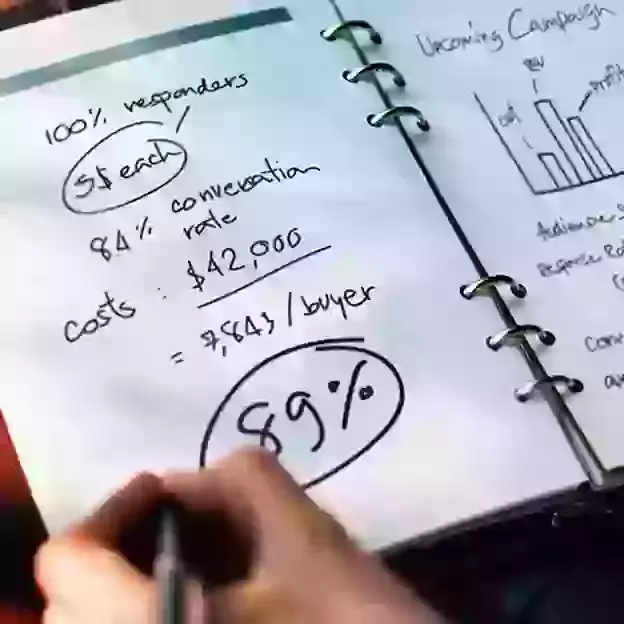 100% responders
5$ each
84% conversation
rate
costs : $42,000
= 7,843 / buyer
89%
Upcoming Campaign
cost
Profit
Audience
Response
Conv